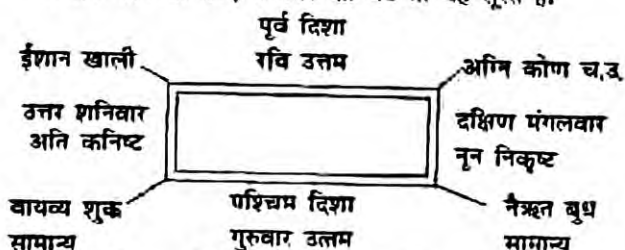 पूर्व दिशा
रवि उत्तम
ईशान खाली
अग्नि कोण च,उ
उत्तर शनिवार
अति कनिष्ट
दक्षिण मंगलवार
नून निकृष्ट
वायव्य शुक्र
सामान्य
पश्चिम दिशा
गुरुवार उत्तम
नैऋत बुध
सामान्य